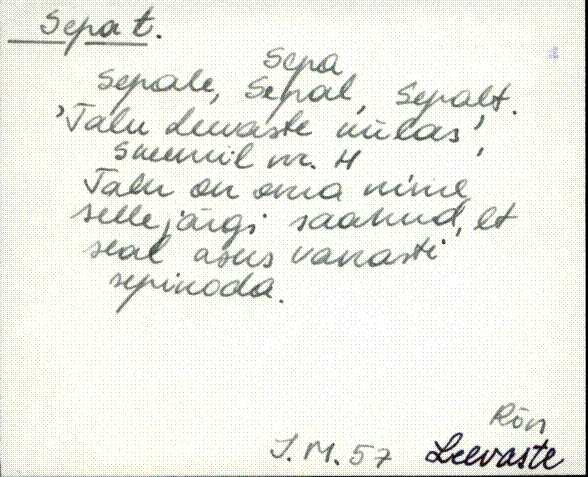 Sepa t.
Sepa
Sepale, Sepal, Sepalt.
'Talu Leevaste külas',
Skeemil nr. 4
Talu on oma nime
selle järgi saanud, et
seal asus vanasti
sepikoda.
Rõn
J.M. 57 Leevaste